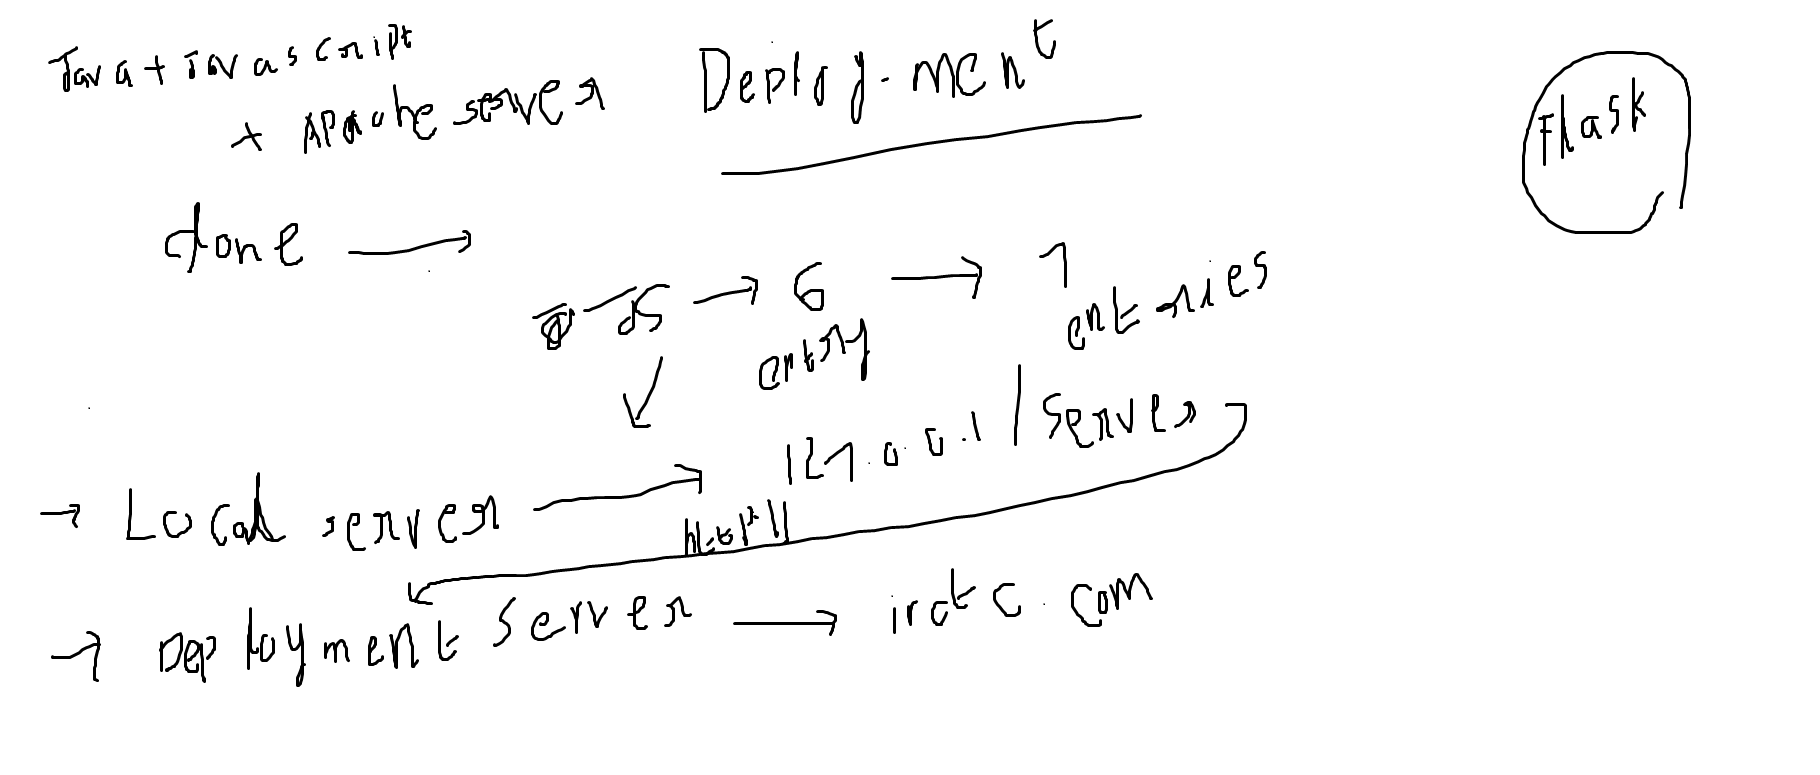 Java + Javascript
+ Apache server
Deploy-ment
Flask
done →
→ 6 → 7
entry entries
→ Local server → 127.0.0.1 / server
http://
→ Deployment server → irctc.com